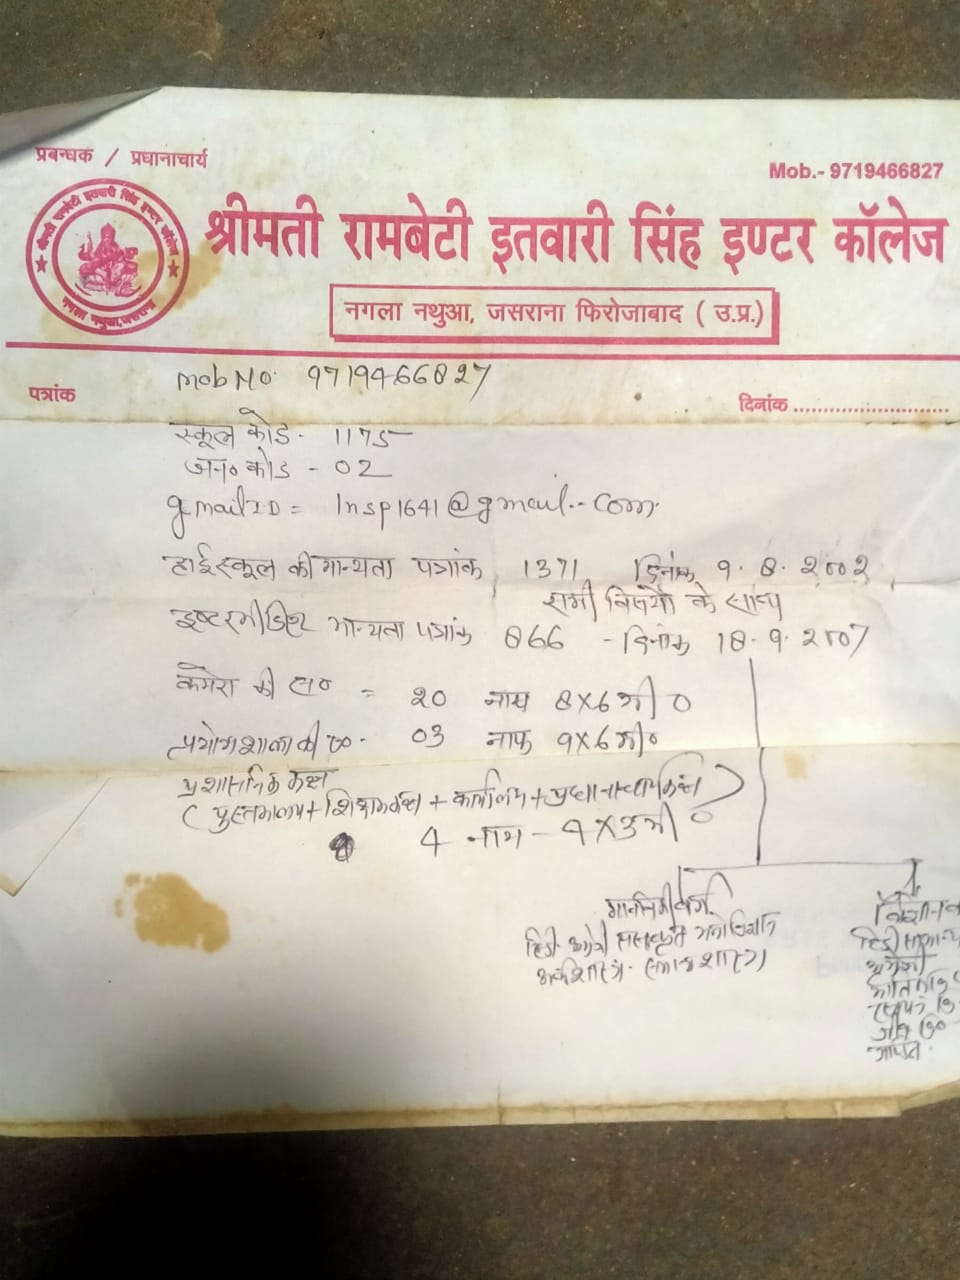 प्रबन्धक / प्रधानाचार्य
Mob.- 9719466827
श्रीमती रामबेटी इतवारी सिंह इण्टर कॉलेज
नगला नथुआ, जसराना फिरोजाबाद ( उ.प्र.)
पत्रांक
दिनांक
Mob No. 9719466827
स्कूल कोड - 1175
जन० कोड - 02
gmail ID = Insp1641@gmail.com
हाईस्कूल की मान्यता पत्रांक 1371 दिनांक 9.8.2002
सभी विषयो के साथ
इण्टरमीडिएट मान्यता पत्रांक 866 - दिनांक 18.9.2007
कमरो की स० = 20 नाप 8X6 मी०
प्रयोगशाला की स० - 03 नाप 9X6 मी०
प्रशासनिक कक्ष
( पुस्तकालय + शिक्षक कक्ष + कार्यालय + प्रधानाचार्य कक्ष )
4 नाप -
मानविकी वर्ग
हिन्दी अंग्रेजी संस्कृत मनोविज्ञान
अर्थशास्त्र समाजशास्त्र
हिन्दी सामान्य
अंग्रेजी
गणित